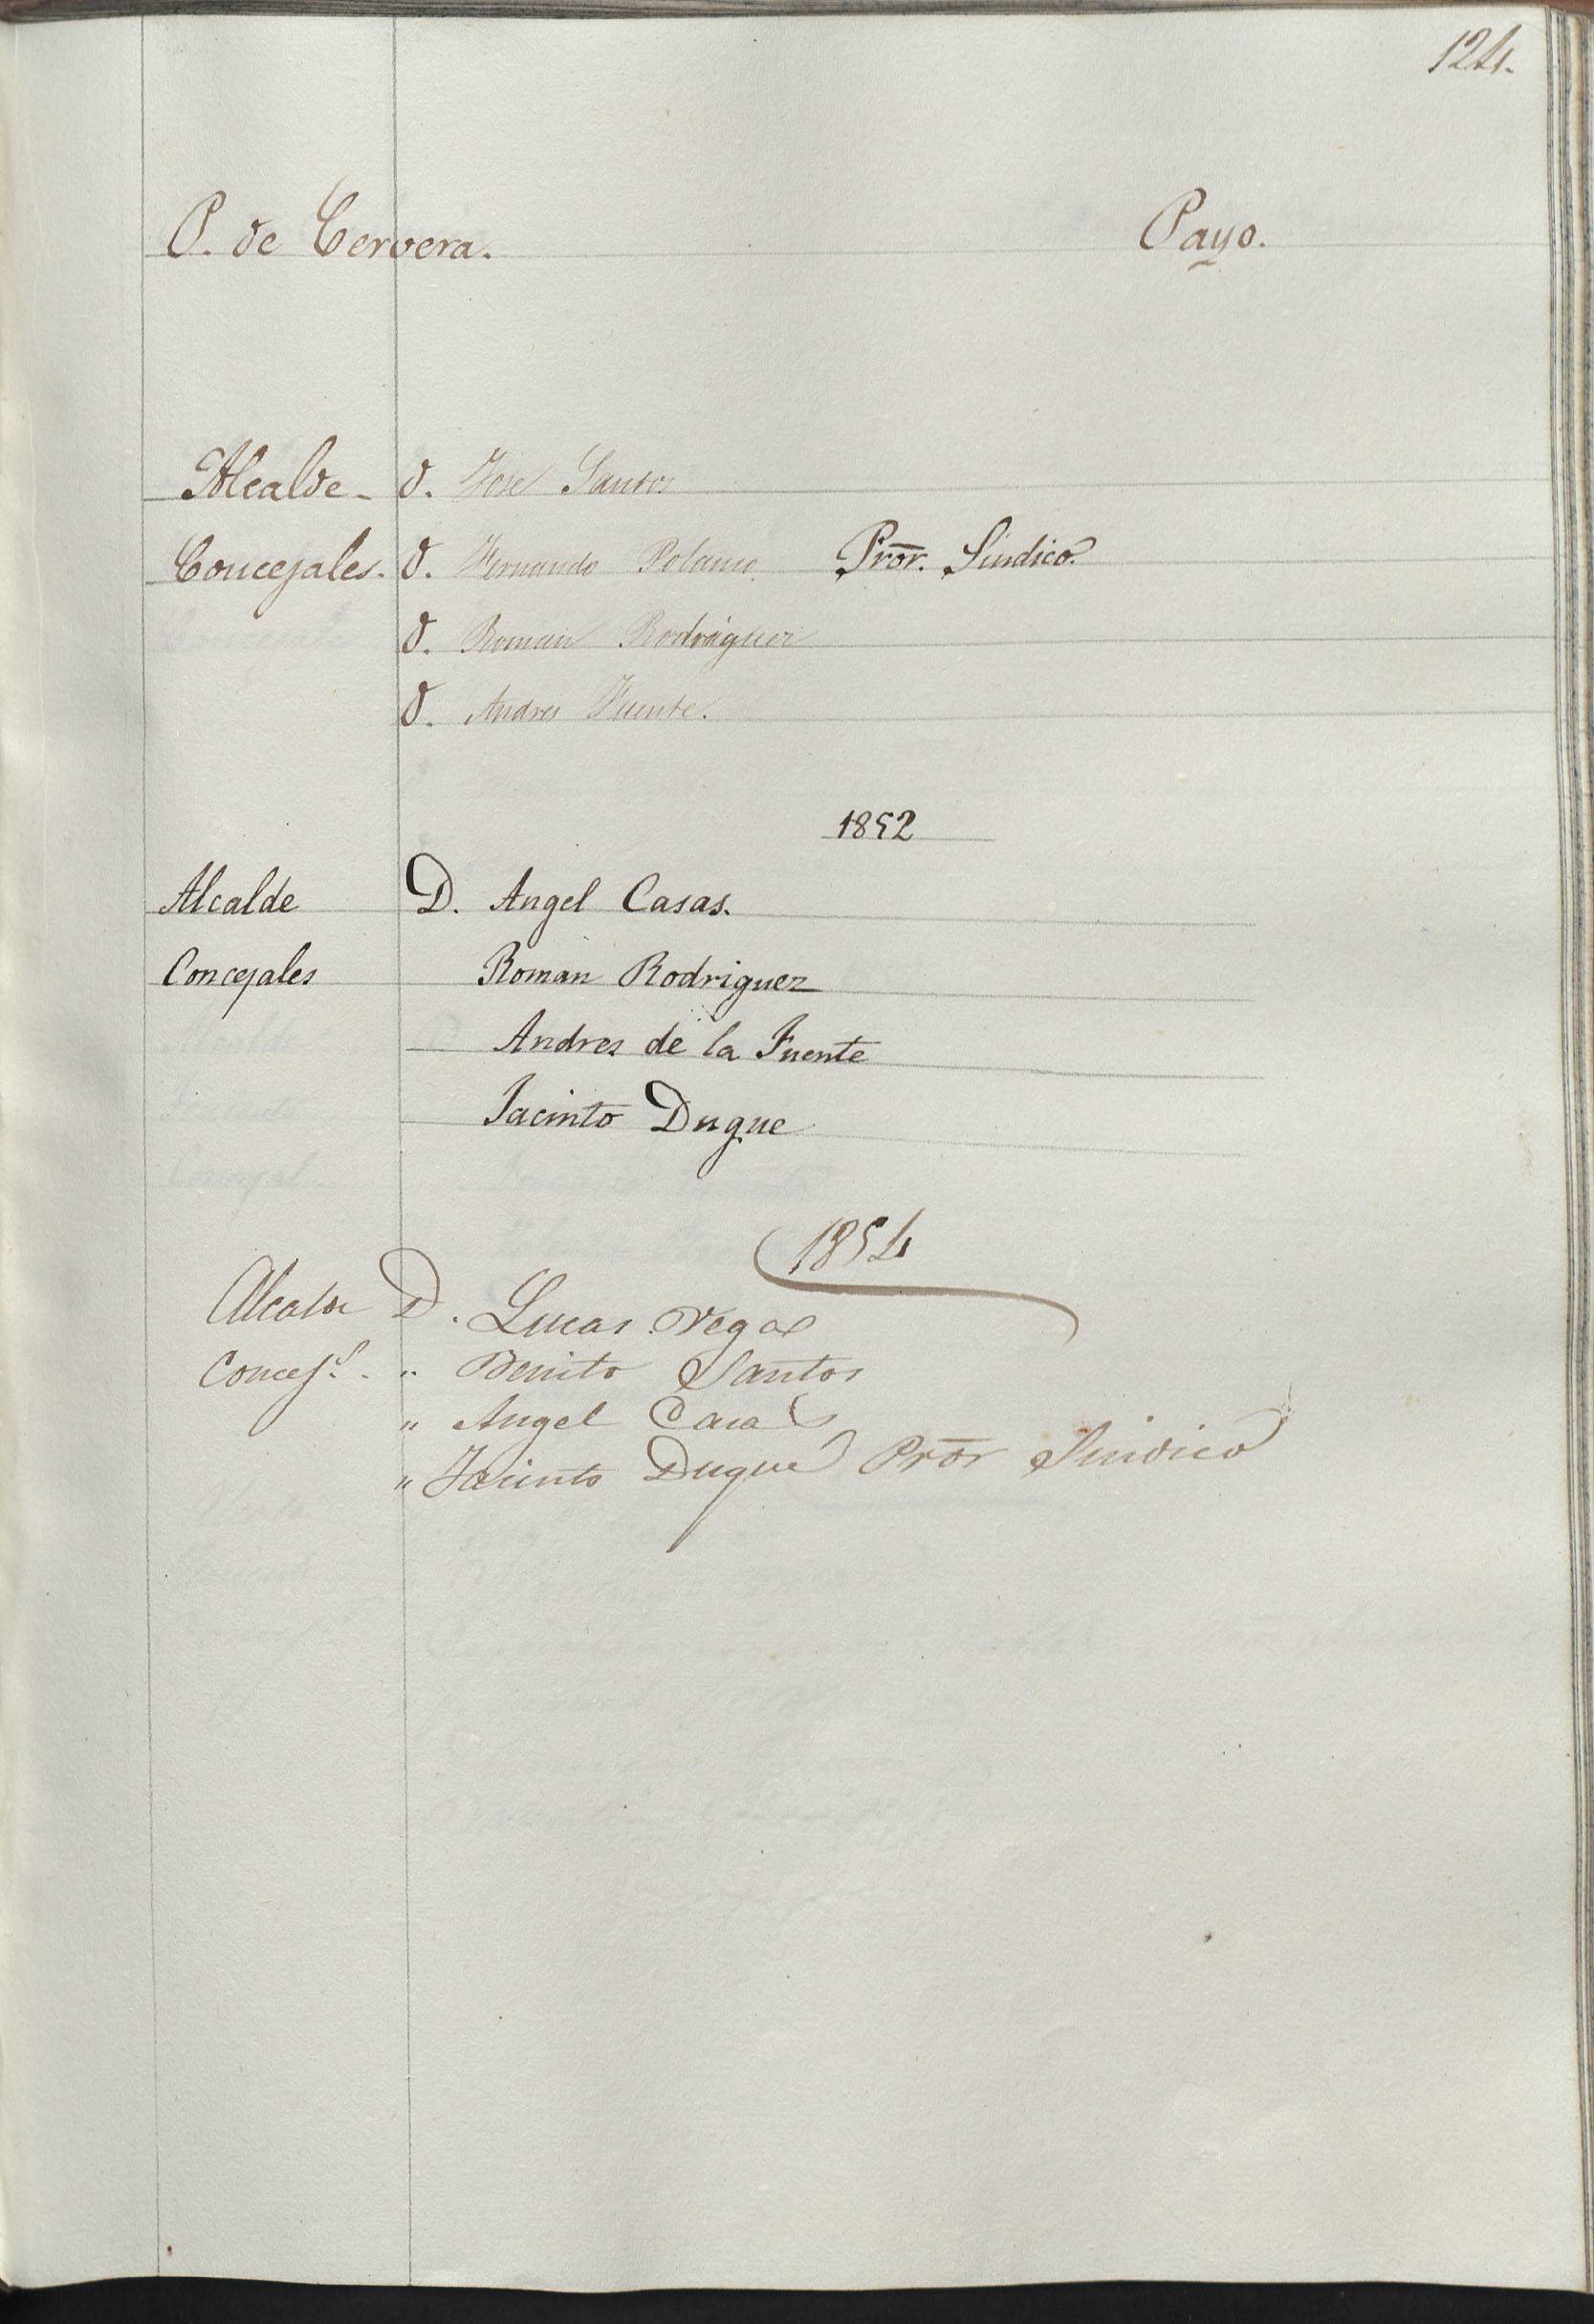 124.
P. de Cervera. Payo.
Alcalde - D. Jose Santos
Concejales. D. Fernando Polanco Pror. Sindico.
D. Roman Rodriguez
D. Andres Fuente.
1852
Alcalde D. Angel Casas.
Concejales Roman Rodriguez
Andres de la Fuente
Jacinto Duque
1854
Alcalde D. Lucas Vega
Concej.s " Benito Santos
" Angel Casas
" Jacinto Duque Pror Sindico